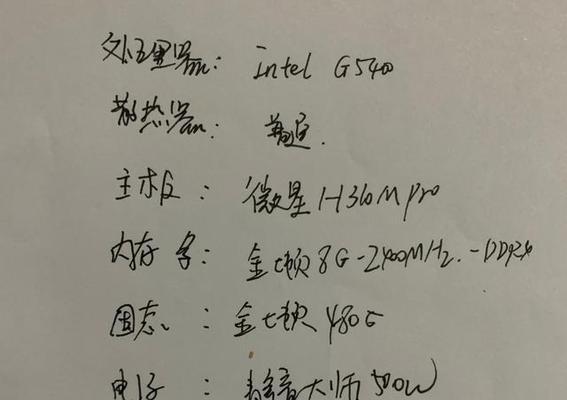 处理器: intel G5400
散热器: 普通.
主板: 微星H310M pro
内存条: 金士顿8G-2400MHz.-DDR4
固态: 金士顿480G
电源: 静音大师500W